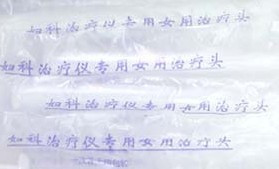 妇科治疗仪专用女用治疗头
妇科治疗仪专用女用治疗头
妇科治疗仪专用女用治疗头
妇科治疗仪专用女用治疗头